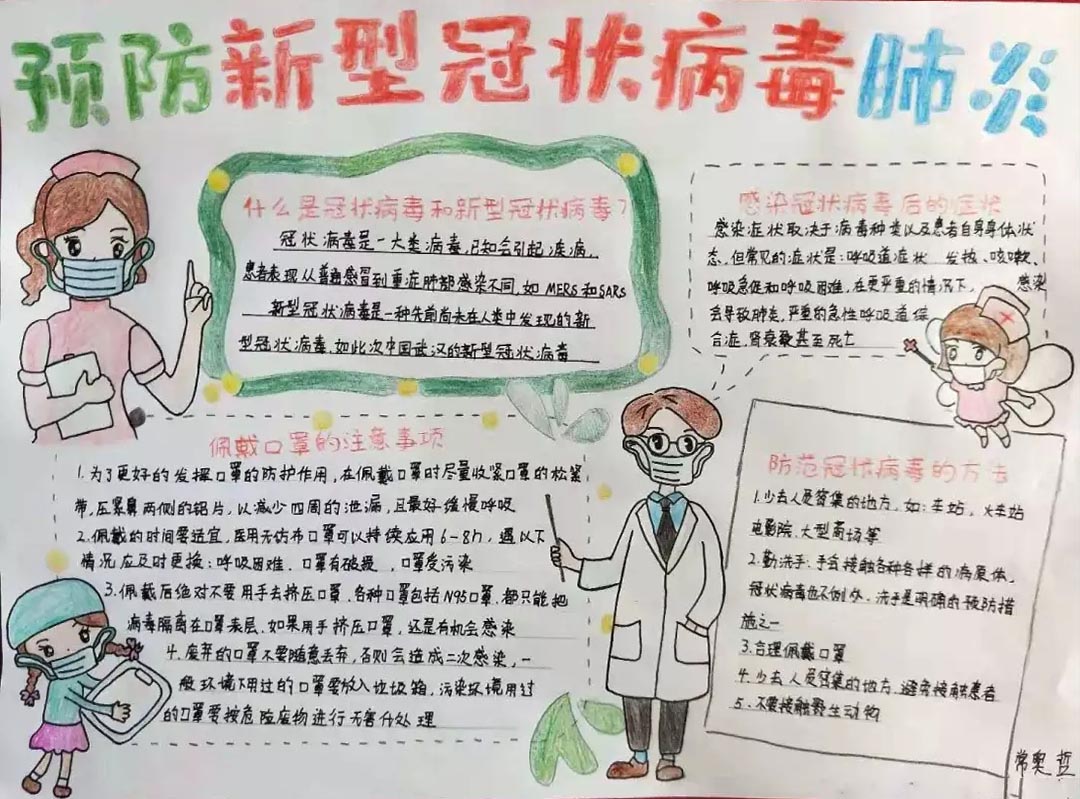 预防新型冠状病毒肺炎
什么是冠状病毒和新型冠状病毒？
冠状病毒是一大类病毒，已知会引起疾病，
患者表现从普通感冒到重症肺部感染不同，如MERS和SARS
新型冠状病毒是一种先前尚未在人类中发现的新
型冠状病毒，如此次中国武汉的新型冠状病毒
感染冠状病毒后的症状
感染症状取决于病毒种类以及患者自身身体状
态，但常见的症状是：呼吸道症状 发热、咳嗽、
呼吸急促和呼吸困难，在更严重的情况下， 感染
会导致肺炎，严重的急性呼吸道综
合症，肾衰竭甚至死亡
佩戴口罩的注意事项
1.为了更好的发挥口罩的防护作用，在佩戴口罩时尽量收紧口罩的松紧
带，压紧鼻两侧的铝片，以减少四周的泄漏，且最好缓慢呼吸
2.佩戴的时间要适宜，医用无仿布口罩可以持续应用6-8h，遇以下
情况应及时更换：呼吸困难、口罩有破损，口罩受污染
3.佩戴后绝对不要用手去挤压口罩、各种口罩包括N95口罩、都只能把
病毒隔离在口罩表层，如果用手挤压口罩，还是有机会感染
4.废弃的口罩不要随意丢弃，否则会造成二次感染，一
般环境下用过的口罩要放入垃圾箱，污染环境用过
的口罩要按危险废物进行无害化处理
防范冠状病毒的方法
1.少去人员密集的地方，如：车站，火车站
电影院、大型商场等
2.勤洗手：手会接触各种各样的病原体，
冠状病毒也不例外，洗手是明确的预防措
施之一
3.合理佩戴口罩
4.少去人员密集的地方，避免接触患者
5.不要接触野生动物
常奥哲